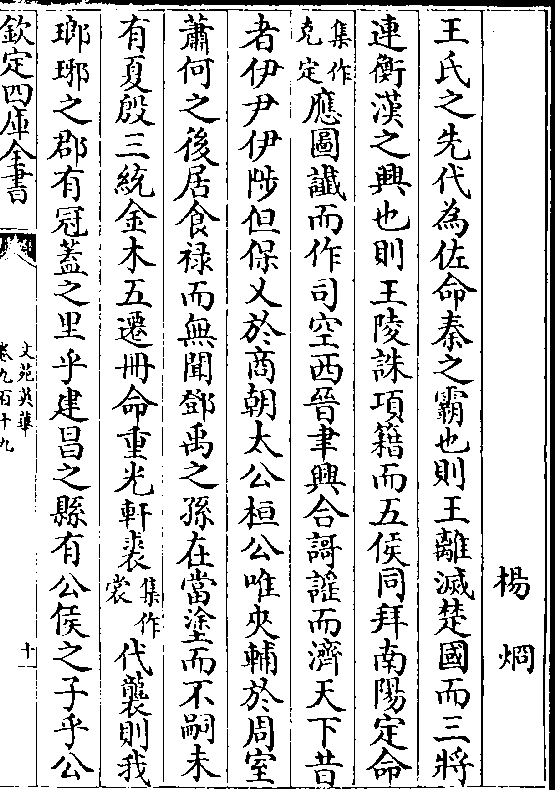 楊烱
王氏之先代為佐命秦之霸也則王離滅楚國而三將
連衡漢之興也則王陵誅項籍而五侯同拜南陽定命
集作克定應圖讖而作司空西晉聿興合謌謠而濟天下昔
者伊尹伊陟但保乂於商朝太公桓公唯夾輔於周室
蕭何之後居食禄而無聞鄧禹之孫在當塗而不嗣未
有夏殷三統金木五遷冊命重光軒裴集作裳代襲則我
瑯琊之郡有冠蓋之里乎建昌之縣有公侯之子乎公
欽定四庫全書
文苑英華
卷九百十九
十一